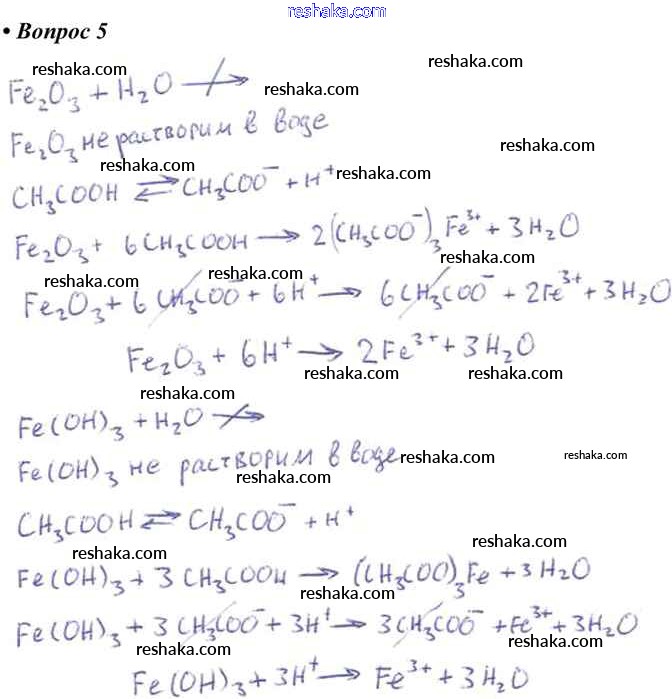 reshaka.com
• Вопрос 5
reshaka.com reshaka.com
Fe₂O₃ + H₂O ↛ reshaka.com
Fe₂O₃ не растворим в воде
reshaka.com reshaka.com
CH₃COOH ⇄ CH₃COO⁻ + H⁺ reshaka.com
reshaka.com reshaka.com
Fe₂O₃ + 6CH₃COOH → 2(CH₃COO⁻)₃Fe³⁺ + 3H₂O
reshaka.com reshaka.com reshaka.com
Fe₂O₃ + 6CH₃COO⁻ + 6H⁺ → 6CH₃COO⁻ + 2Fe³⁺ + 3H₂O
Fe₂O₃ + 6H⁺ → 2Fe³⁺ + 3H₂O
reshaka.com reshaka.com
reshaka.com
Fe(OH)₃ + H₂O ↛
Fe(OH)₃ не растворим в воде reshaka.com reshaka.com
reshaka.com
CH₃COOH ⇄ CH₃COO⁻ + H⁺
reshaka.com reshaka.com
Fe(OH)₃ + 3CH₃COOH → (CH₃COO)₃Fe + 3H₂O
reshaka.com
Fe(OH)₃ + 3CH₃COO⁻ + 3H⁺ → 3CH₃COO⁻ + Fe³⁺ + 3H₂O
reshaka.com reshaka.com
Fe(OH)₃ + 3H⁺ → Fe³⁺ + 3H₂O